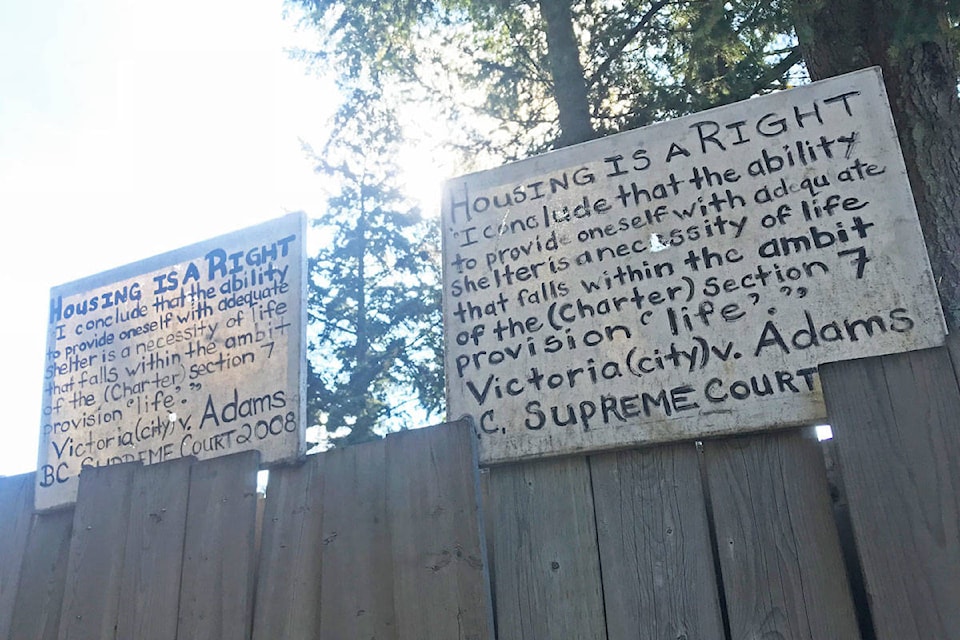 HOUSING IS A RIGHT
I conclude that the ability
to provide oneself with adequate
shelter is a necessity of life
that falls within the ambit
of the (Charter) Section 7
provision "life".,,
Victoria (city) v. Adams
BC SUPREME COURT 2008
HOUSING IS A RIGHT
"I conclude that the ability
to provide oneself with adequate
shelter is a necessity of life
that falls within the ambit
of the (Charter) Section 7
provision "life"."
Victoria (city) v. Adams
C. SUPREME COURT